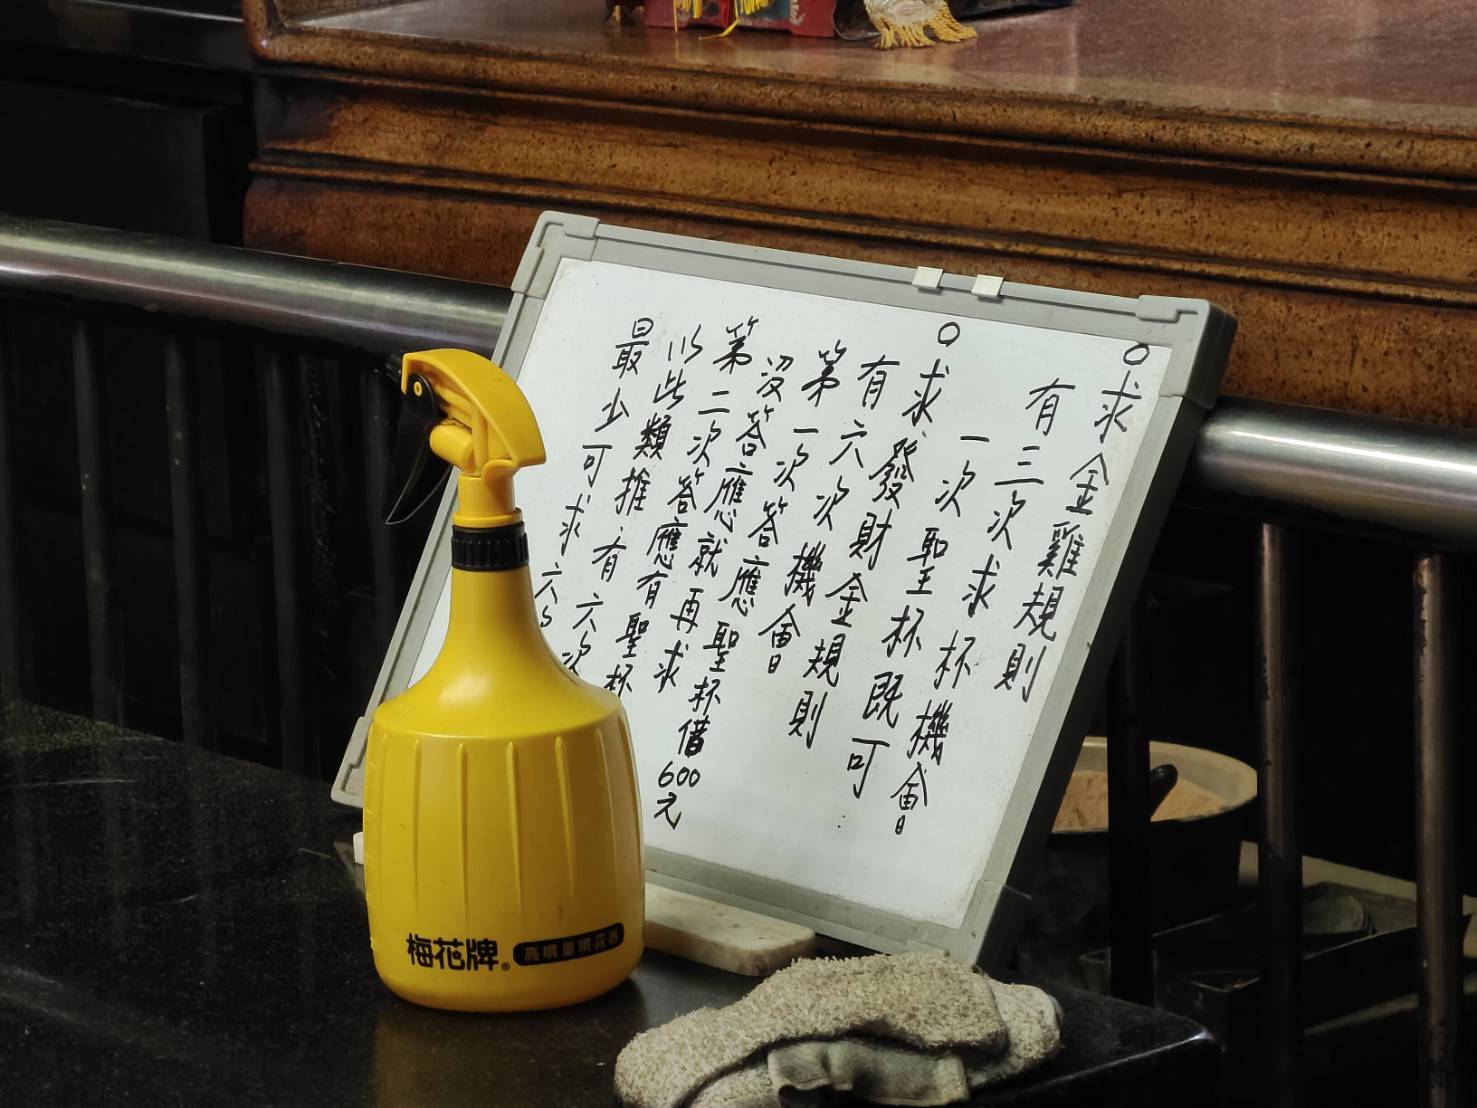 ○求金雞規則
有三次求杯機會
一次聖杯既可
○求發財金規則
有六次機會
第一次答應聖杯借600元
沒答應就再求
第二次答應有聖杯
以此類推有六次
最少可求六
梅花牌®
高噴量噴霧器